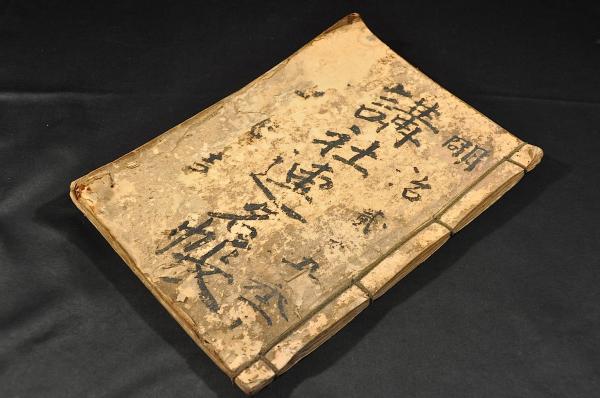 明治貳十九年
講社連名帳